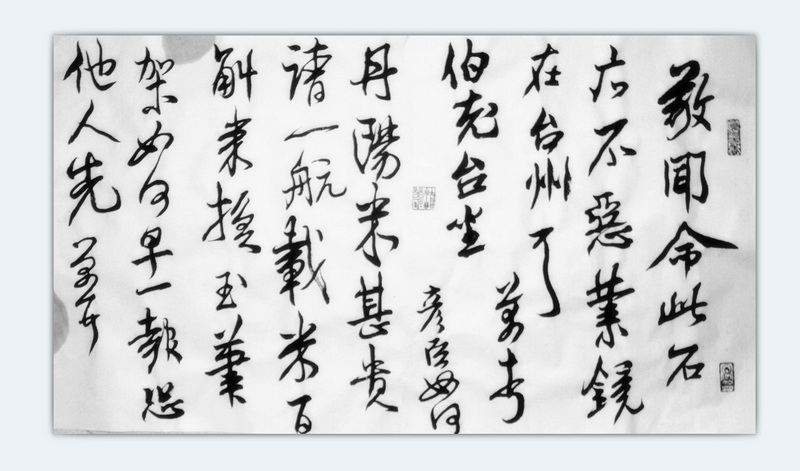 敬聞命此石
后不惡業鏡
在台州耳
伯充台坐
彥臣如何
丹陽米甚貴
請一航載米百
斛來換玉筆
架如何早一報恐
他人先